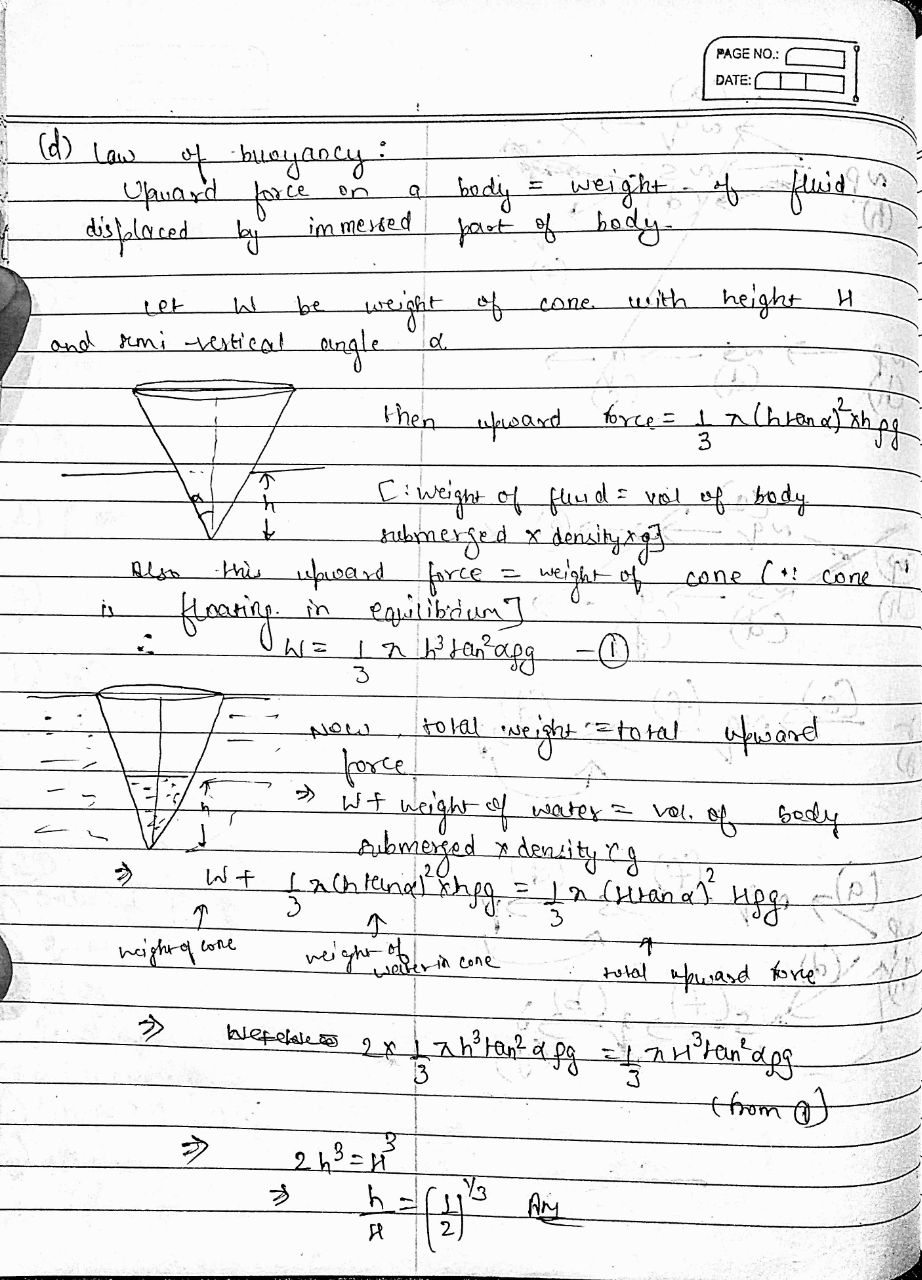 PAGE NO.:
DATE:
(d) Law of buoyancy :
Upward force on a body = weight of fluid
displaced by immersed part of body.
Let W be weight of cone with height H
and semi-vertical angle α
then upward force = 1/3 π (h tan α)² × h ρg
α
h
[∵ weight of fluid = vol of body
submerged × density × g]
Also this upward force = weight of cone (∵ cone
is floating in equilibrium]
∴ W = 1/3 π h³ tan² α ρg - ①
Now, total weight = total upward
force
h
⇒ W + weight of water = vol. of body
submerged × density × g
⇒ W + 1/3 π (h tan α)² × h ρg = 1/3 π (H tan α)² H ρg
↑ ↑ ↑
weight of cone weight of water in cone total upward force
⇒ 2 × 1/3 π h³ tan² α ρg = 1/3 π H³ tan² α ρg
(from ①)
⇒ 2h³ = H³
⇒ h/H = (1/2)^1/3 Ans